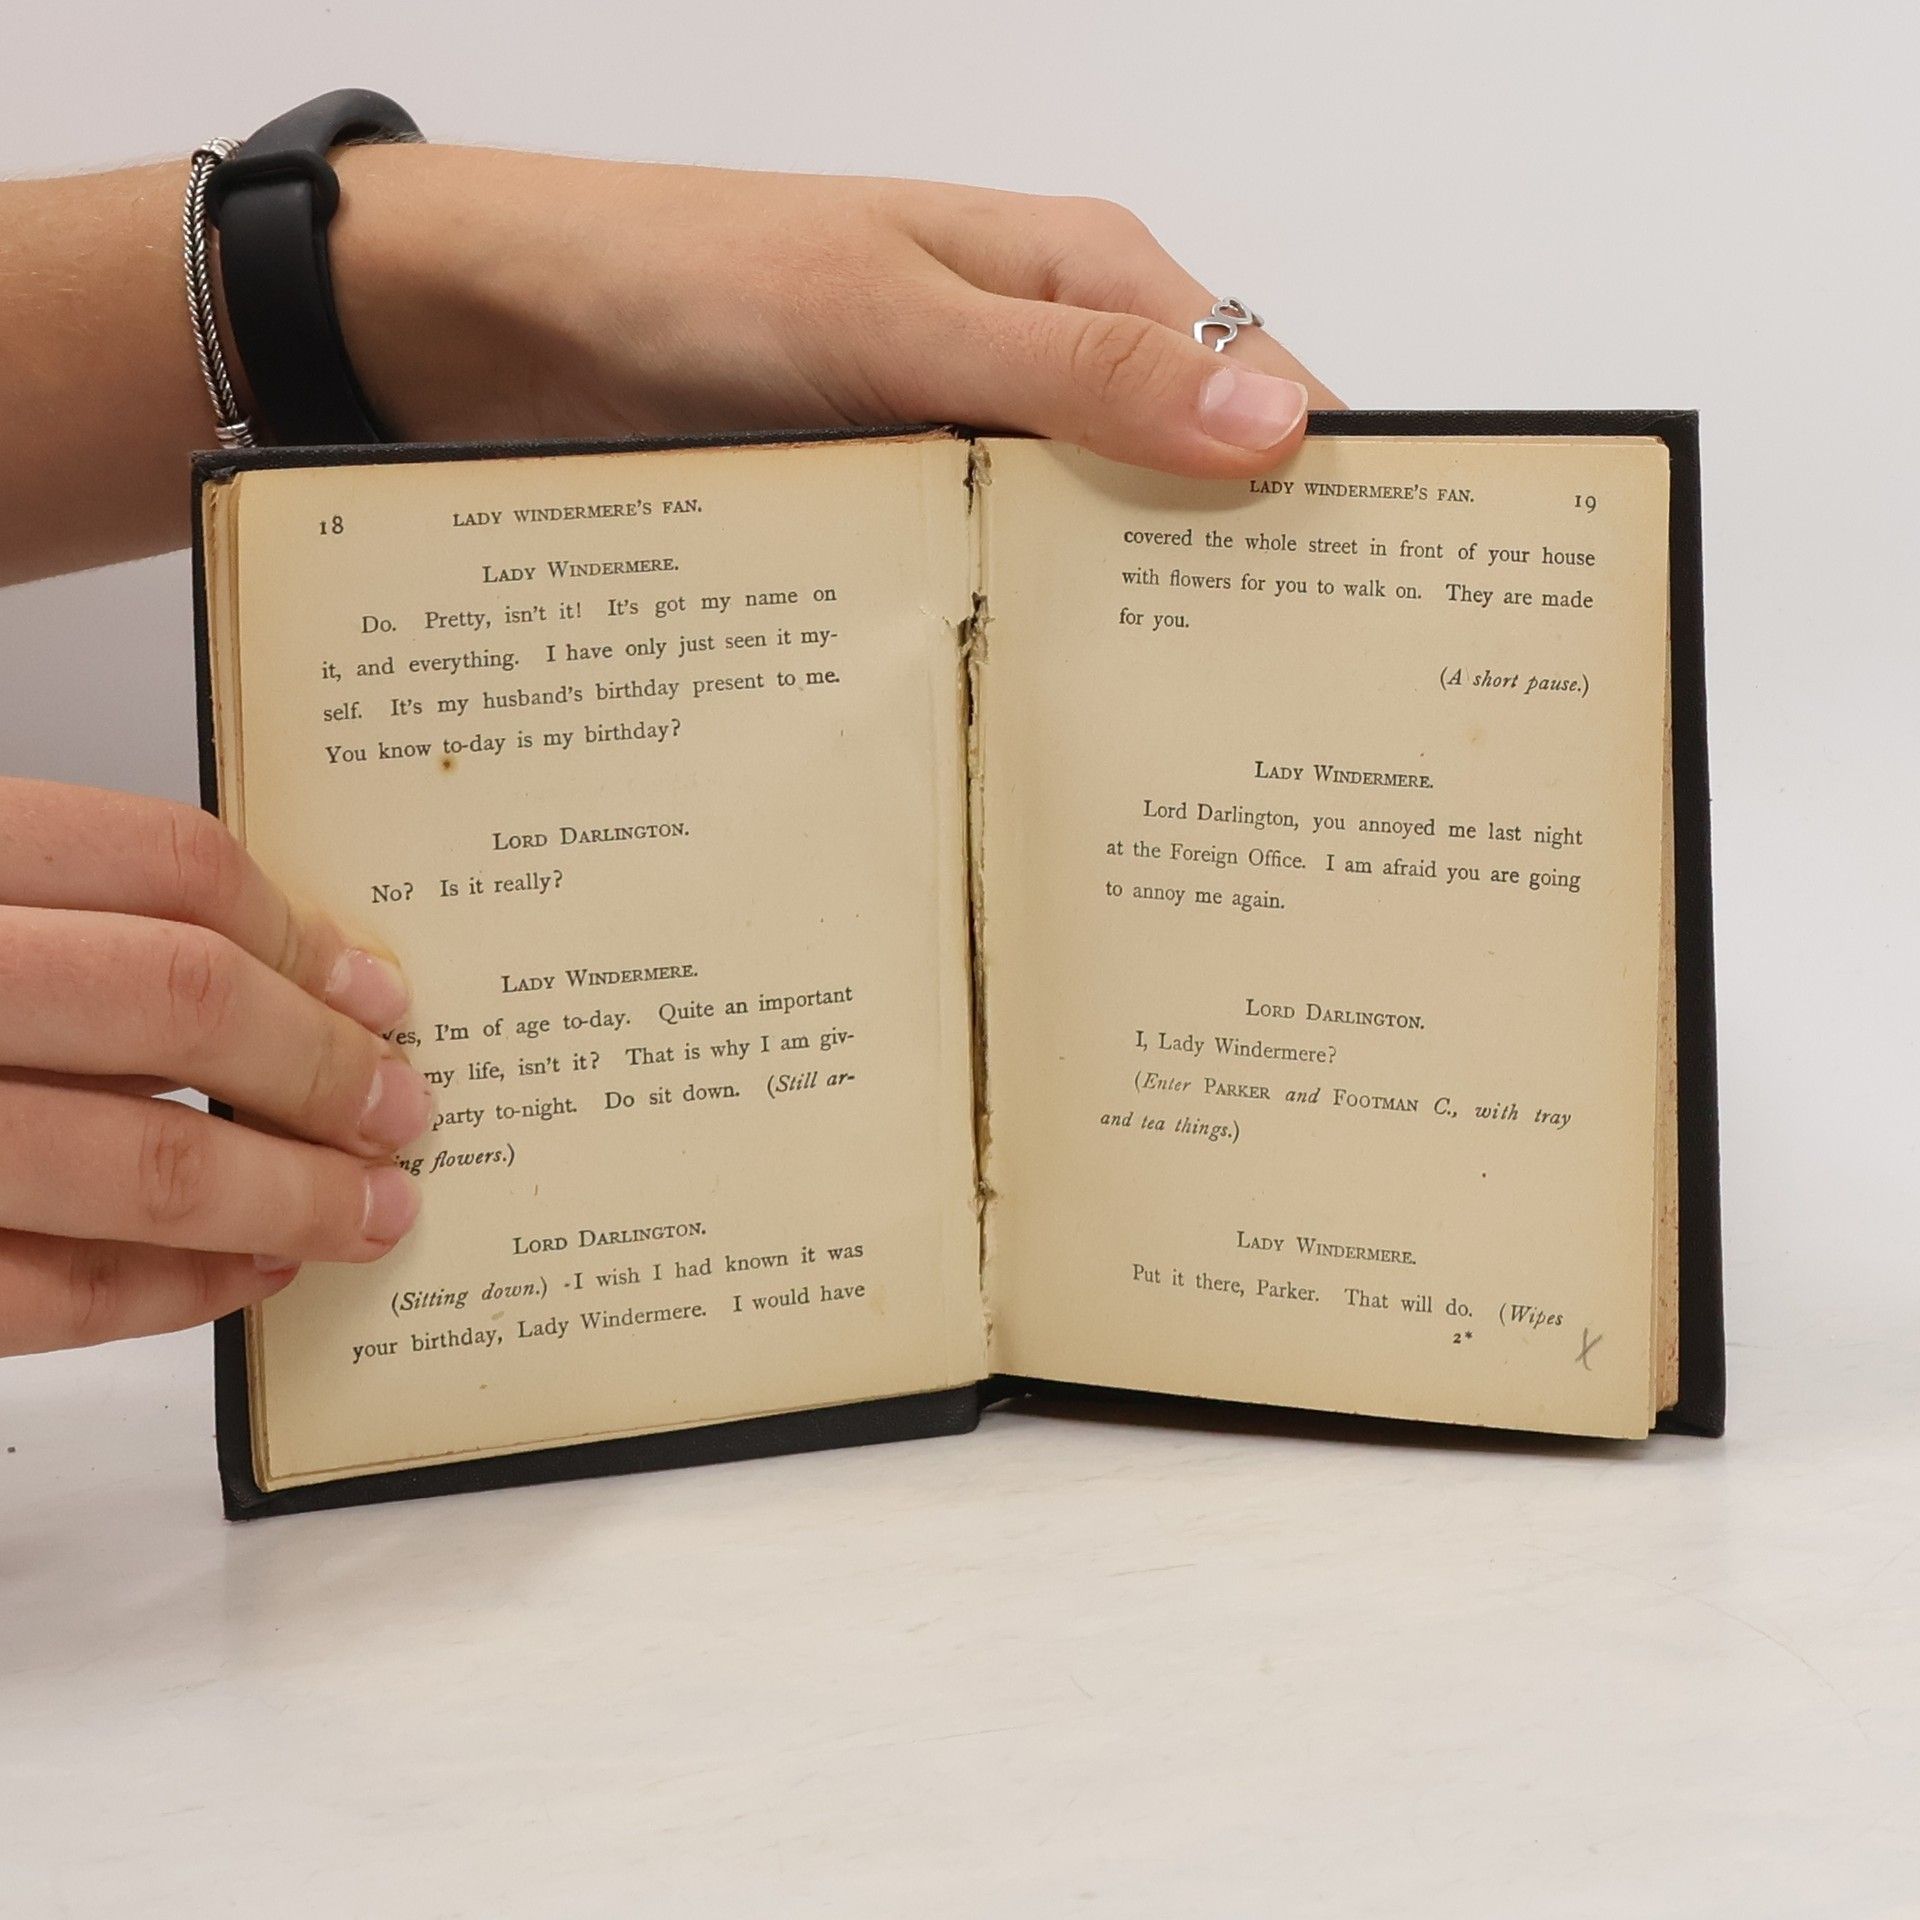 18 LADY WINDERMERE'S FAN.
LADY WINDERMERE.
Do. Pretty, isn't it! It's got my name on
it, and everything. I have only just seen it my-
self. It's my husband's birthday present to me.
You know to-day is my birthday?
LORD DARLINGTON.
No? Is it really?
LADY WINDERMERE.
Yes, I'm of age to-day. Quite an important
my life, isn't it? That is why I am giv-
party to-night. Do sit down. (Still ar-
ing flowers.)
LORD DARLINGTON.
(Sitting down.) -I wish I had known it was
your birthday, Lady Windermere. I would have
LADY WINDERMERE'S FAN. 19
covered the whole street in front of your house
with flowers for you to walk on. They are made
for you.
(A short pause.)
LADY WINDERMERE.
Lord Darlington, you annoyed me last night
at the Foreign Office. I am afraid you are going
to annoy me again.
LORD DARLINGTON.
I, Lady Windermere?
(Enter PARKER and FOOTMAN C., with tray
and tea things.)
LADY WINDERMERE.
Put it there, Parker. That will do. (Wipes
2*
X